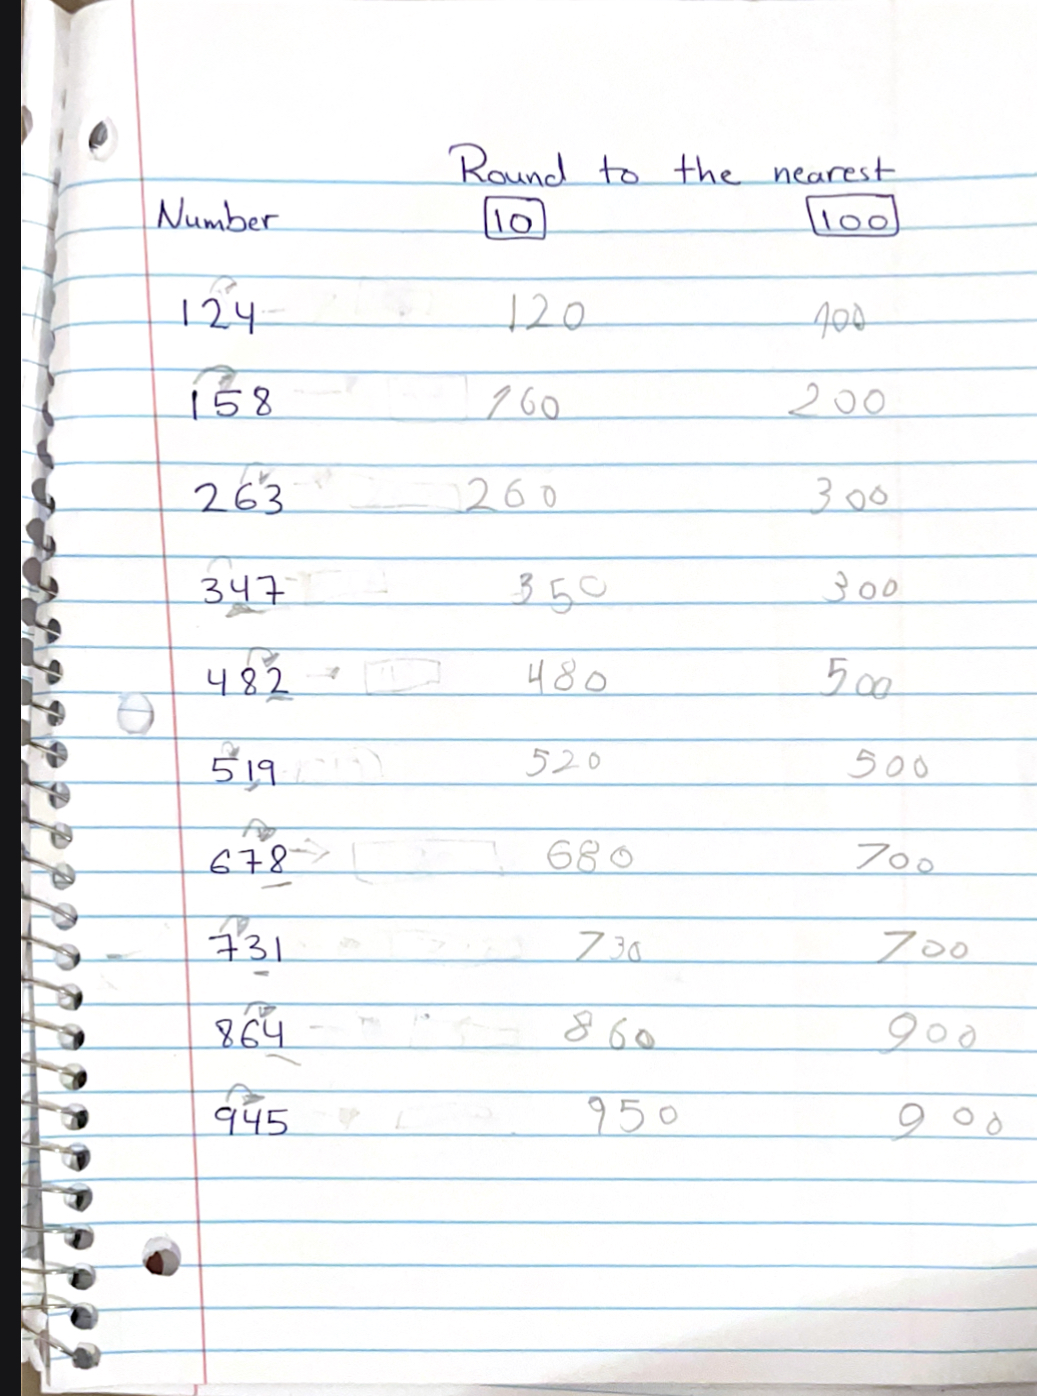 Round to the nearest
Number 10 100
124 120 100
158 160 200
263 260 300
347 350 300
482 480 500
519 520 500
678 680 700
731 730 700
864 860 900
945 950 900